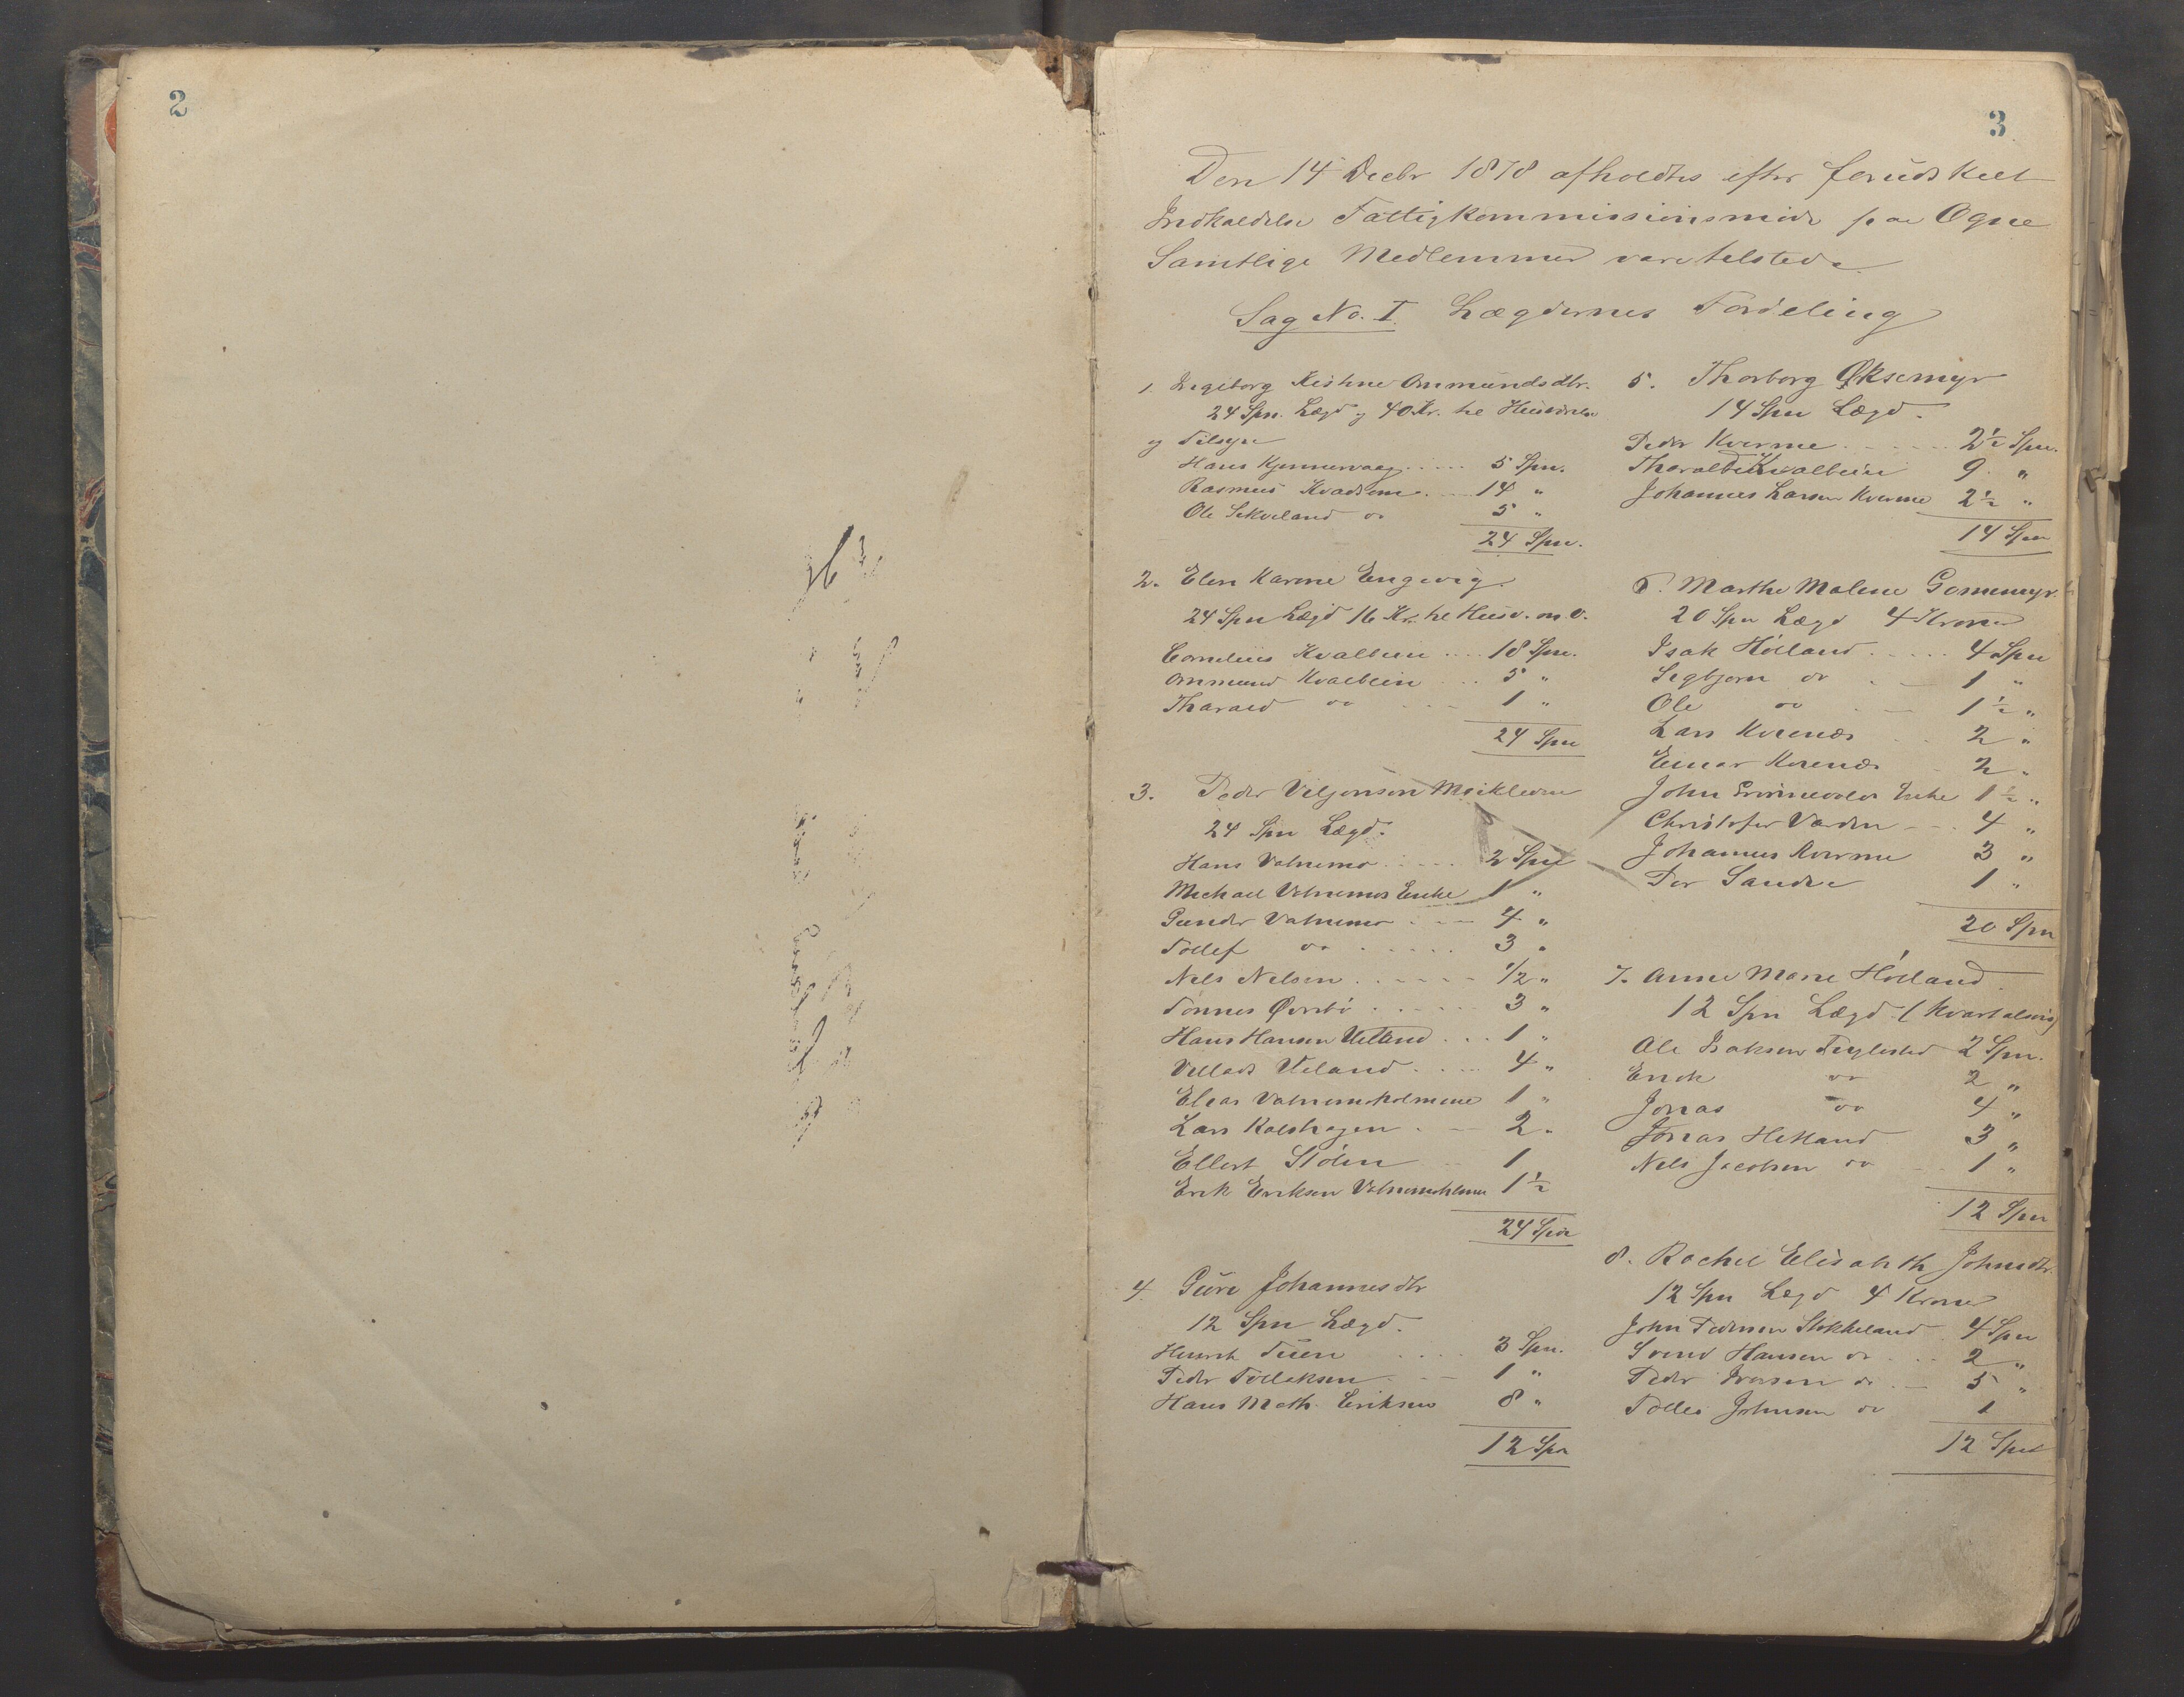 2
3
Den 14 Decbr 1878 afholdtes efter forudskeet
Indkaldelse Fattigkommissionsmøde paa Ogne
Samtlige Medlemmer vare tilstede
Sag No. I. Lægdernes Fordeling
1. Ingeborg Kistine Ommundsdtr.
24 Spn. Lægd og 40 Kr. til Husværelse
og Tilsyn
Hans Kjennervaag 5 Spn.
Rasmus Kvadsem 14 "
Ole Sekveland do 5 "
24 Spn.
2. Elen Karine Engevig.
24 Spn Lægd 16 Kr. til Husv. m.v.
Cornelius Kvalbein 18 Spn.
Ommund Kvalbein 5 "
Tharald do 1 "
24 Spn
3. Peder Veljonsen
24 Spn Lægd.
Hans Vatnemo 2 Spn
Michael Vatnemos Enke 1 "
Gunder Vatnemo 4 "
Tollef do 3 "
Nels Nelsen 1/2 "
Tønnes Øvrebø 3 "
Hans Hansen Ueland 1 "
Vellads Ueland 4 "
Elias Vatnemoholmene 1 "
Lars Kolshagen 2 "
Ellert Stølen 1
Erik Eriksen 1 1/2
24 Spn
4. Guri Johannesdtr
12 Spn Lægd.
Henrik Tuen 3 Spn.
Peder Tollaksen 1 "
Hans Math. Eriksen 8 "
12 Spn
5. Thorborg Øksemyr
14 Spn Lægd.
Peder Kverme 2 1/2 Spn.
Kvalbein 9 "
Johannes Larsen Kverme 2 1/2 "
14 Spn
Marthe Malene
20 Spn Lægd 4 Kroner
Isak Hólland 4 Spn
Segbjørn do 1 "
Ole do 1 1/2 "
Lars Kvenæs 2 "
Einar Kvenæs 2 "
John Enke 1 1/2 "
Christofer Varden 4 "
Johannes Kverme 3 "
Per Sandve 1 "
20 Spn
7. Anne Marie Hólland
12 Spn Lægd (Kvartalsvis)
Ole Isaksen Teglested 2 Spn.
Enok do 2 "
Jonas do 4 "
Jonas Hetland 3 "
Nels Jacobsen do 1 "
12 Spn
8. Rachel Elisabeth Johnsdtr.
12 Spn Lægd 4 Kroner
John Pedersen Stokkeland 4 Spn
Svend Hansen do 2 "
Peder Iversen do 5 "
Tolles Johnsen do 1
12 Spn